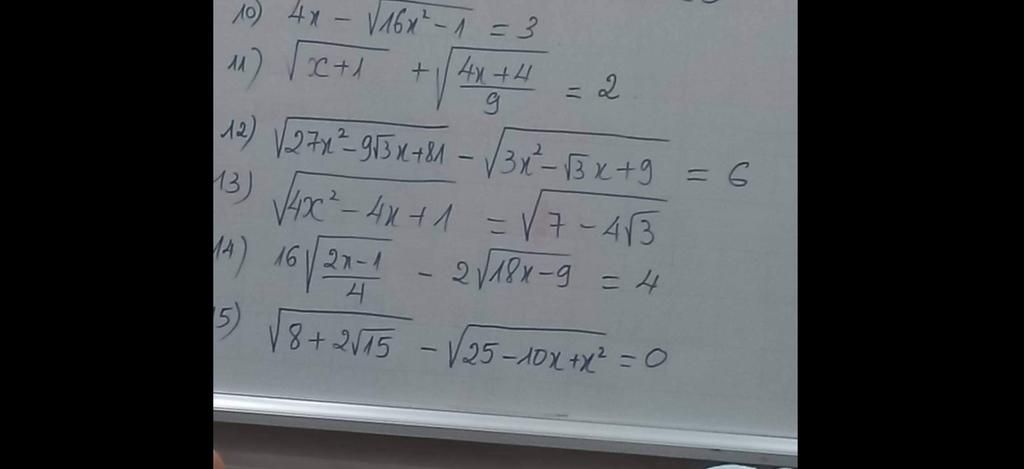 10) 4x - √(16x² - 1) = 3
11) √(x+1) + √((4x+4)/9) = 2
12) √(27x² - 9√3x + 81) - √(3x² - √3x + 9) = 6
13) √(4x² - 4x + 1) = √(7 - 4√3)
14) 16√((2x-1)/4) - 2√(18x-9) = 4
5) √(8 + 2√15) - √(25 - 10x + x²) = 0